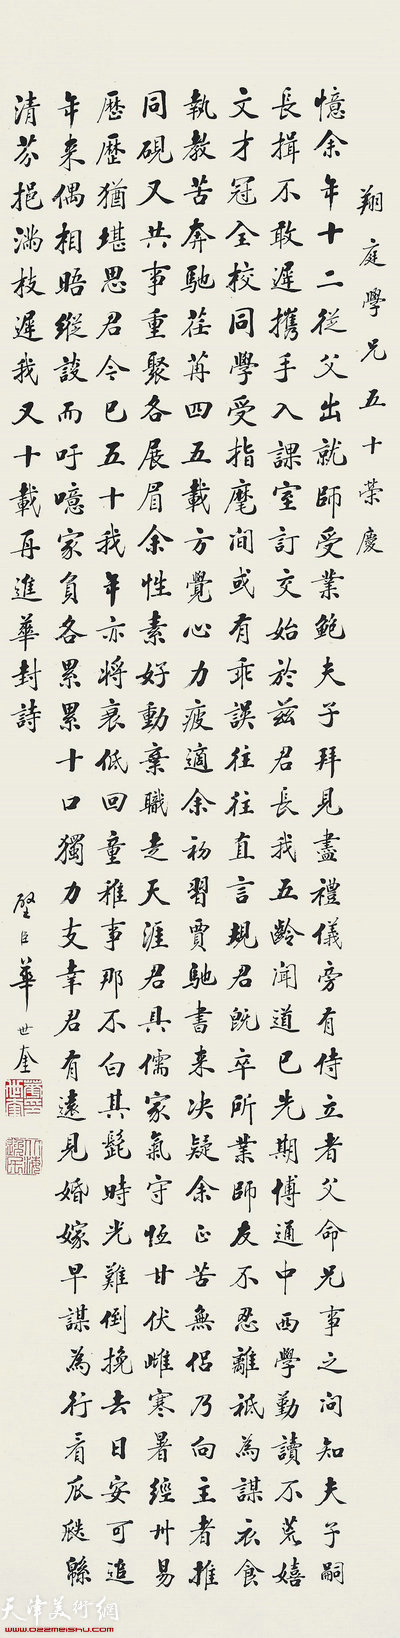 翔庭學兄五十榮慶
憶余年十二從父出就師受業鮑夫子拜見盡禮儀旁有侍立者父命兄事之问知夫子嗣
長揖不敢遲攜手入課室訂交始於兹君長我五齡闻道已先期博通中西學勤讀不荒嬉
文才冠全校同學受指麾间或有乖誤往往直言規君既卒所業師友不忍離祗為謀衣食
執教苦奔馳荏苒四五載方覺心力疲適余初習賈馳書来决疑余正苦無侣乃向主者推
同硯又共事重聚各展眉余性素好動棄職走天涯君具儒家氣守恆甘伏雌寒暑經卅易
歷歷猶堪思君今已五十我年亦將衰低回童稚事那不白其髭時光難倒挽去日安可追
年来偶相晤縱談而吁噫家負各累累十口獨力支幸君有遠見婚嫁早謀為行看瓜瓞緜
清芬挹滿枝遲我又十載再進華封詩
璧臣華世奎
天津美術網
www.022meishu.com